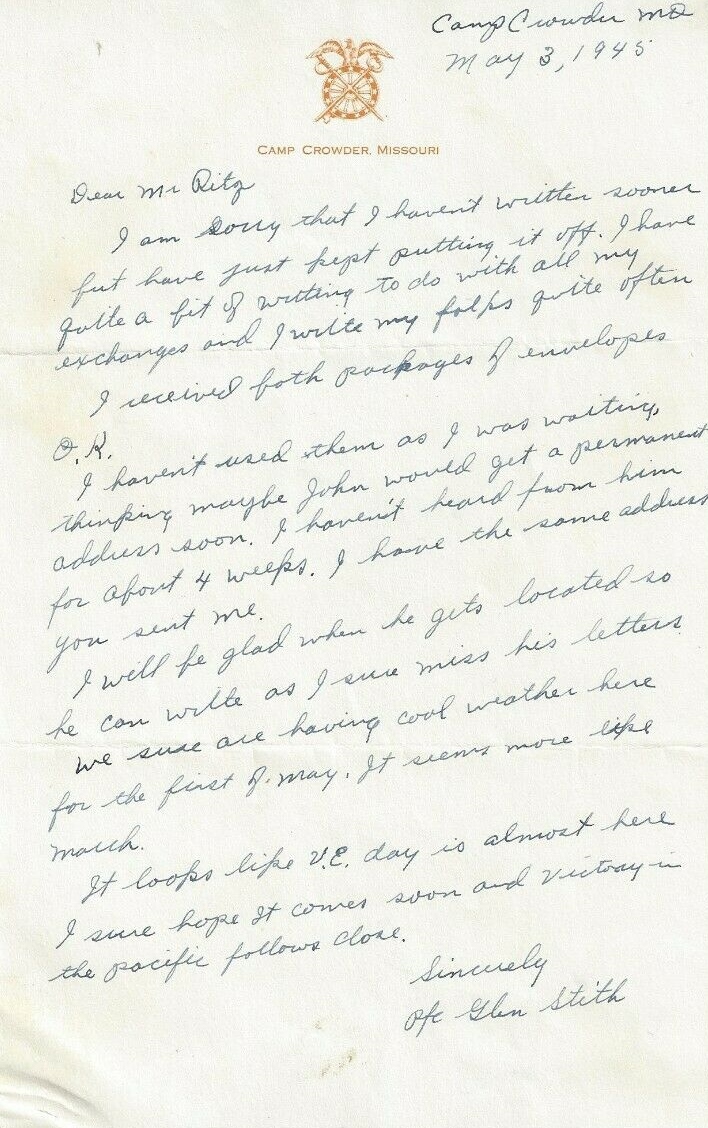 Camp Crowder Mo
May 3, 1945
CAMP CROWDER, MISSOURI
Dear Mr Ritz
I am sorry that I haven't written sooner
but have just kept putting it off. I have
quite a bit of writting to do with all my
exchanges and I write my folks quite often
I received both packages of envelopes
O.K.
I haven't used them as I was waiting,
thinking maybe John would get a permanent
address soon. I haven't heard from him
for about 4 weeks. I have the same address
you sent me.
I will be glad when he gets located so
he can write as I sure miss his letters.
We sure are having cool weather here
for the first of may. It seems more like
march.
It looks like V.E. day is almost here
I sure hope it comes soon and Victory in
the pacific follows close.
Sincerely
Pfc Glen Stith